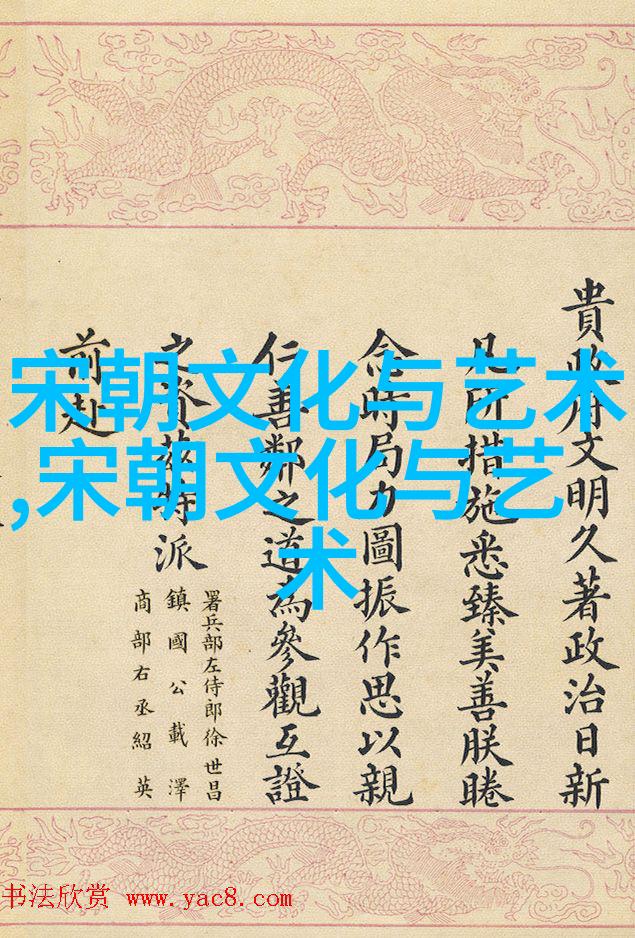 宋朝文化与艺术
,宋朝文化与艺
术
貴政府文明久著政治日新
凡所措施悉臻美善朕睠
念時局力圖振作思以親
仁善鄰之道為參觀互證
之資茲特派
署兵部左侍郎徐世昌
鎮國公載澤
商部右丞紹英
前赴
书法欣赏 www.yac8.com